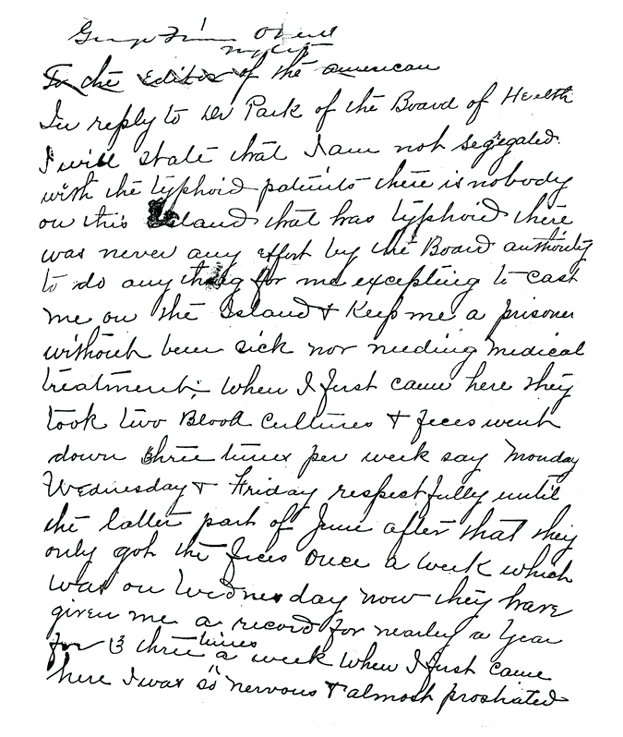 George
To the Editor of the American
In reply to Dr Park of the Board of Health
I will state that I am not segregated
with the typhoid patients there is nobody
on this Island that has typhoid there
was never any effort by the Board authority
to do any thing for me excepting to cast
me on the Island & Keep me a prisoner
without been sick nor needing medical
treatment; when I first came here they
took two Blood cultures & feces went
down three times per week say Monday
Wednesday & Friday respectfully until
the latter part of June after that they
only got the feces once a week which
was on Wednesday now they have
given me a record for nearly a year
for three times a week when I first came
here I was so nervous & almost prostrated